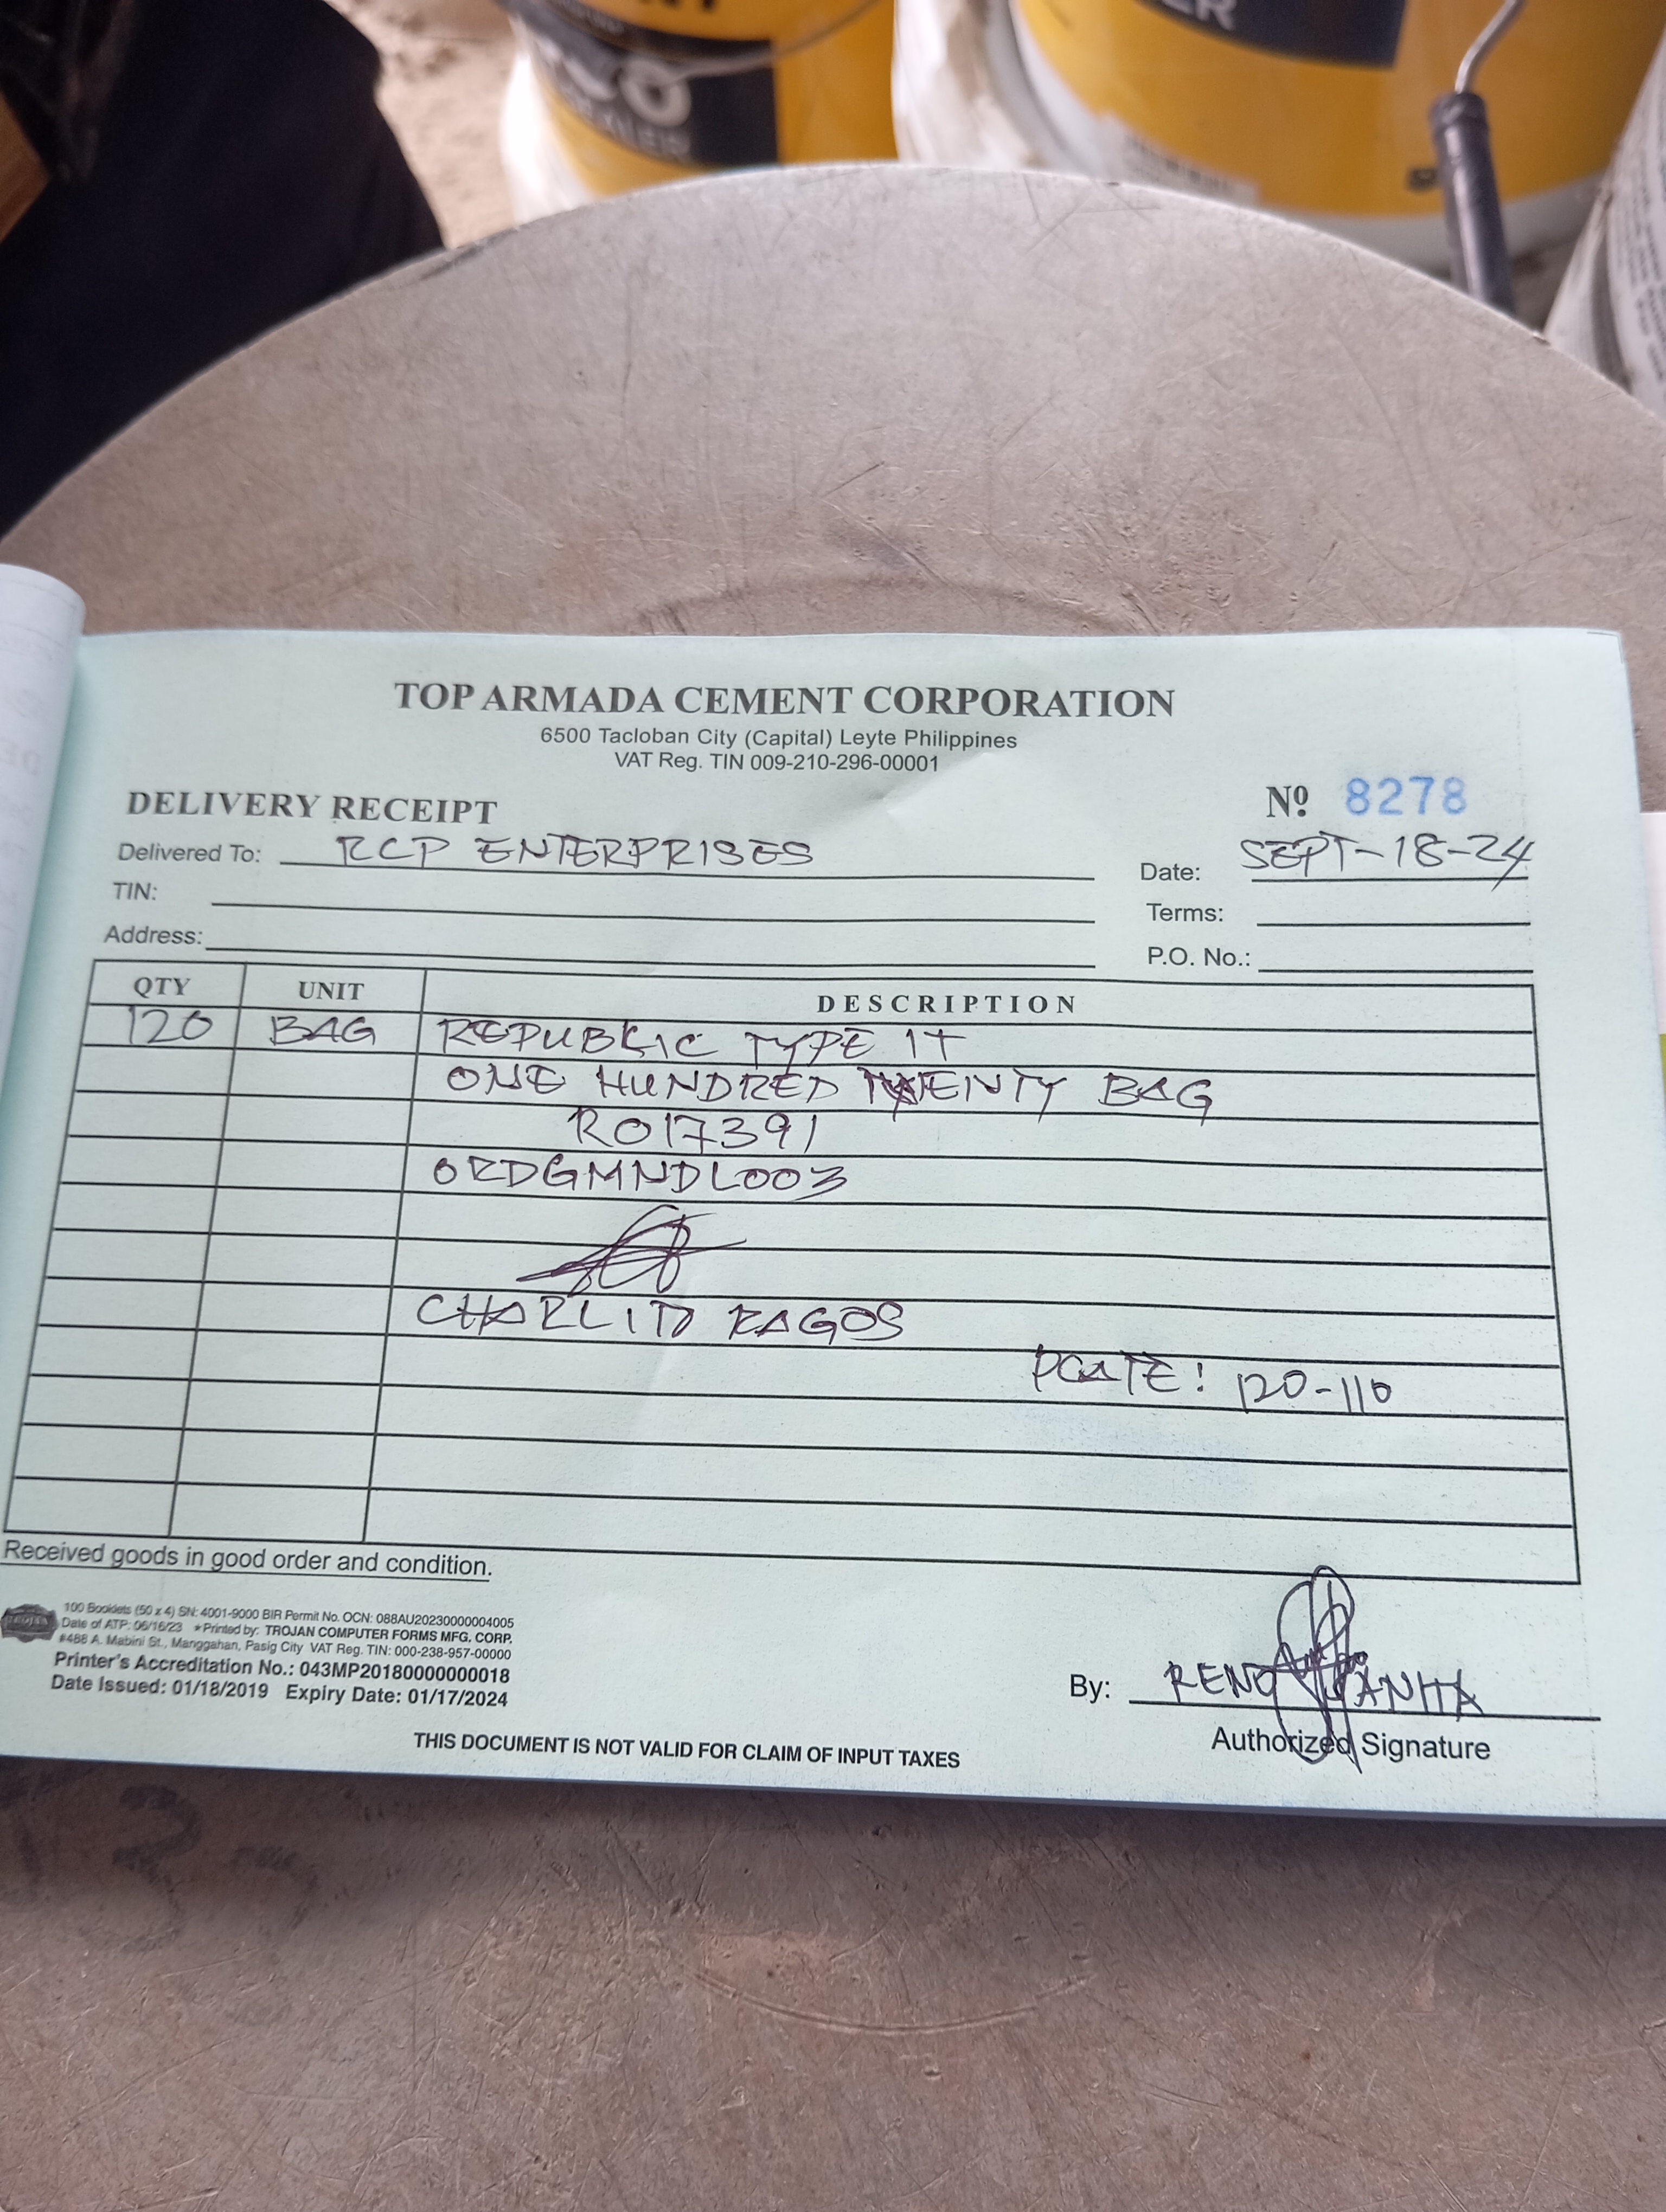 TOP ARMADA CEMENT CORPORATION
6500 Tacloban City (Capital) Leyte Philippines
VAT Reg. TIN 009-210-296-00001
DELIVERY RECEIPT
Nº 8278
Delivered To: RCP ENTERPRISES
Date: SEPT-18-24
TIN:
Terms:
Address:
P.O. No.:
QTY UNIT DESCRIPTION
120 BAG REPUBLIC TYPE 1T
ONE HUNDRED TWENTY BAG
R017391
ORDGMNDL003
CHARLITO RAGOS
PLATE: 120-110
Received goods in good order and condition.
100 Booklets (50 x 4) SN: 4001-9000 BIR Permit No. OCN: 088AU20230000004005
Date of ATP: 06/16/23 * Printed by: TROJAN COMPUTER FORMS MFG. CORP.
#488 A. Mabini St., Manggahan, Pasig City VAT Reg. TIN: 000-238-957-00000
Printer's Accreditation No.: 043MP20180000000018
Date Issued: 01/18/2019 Expiry Date: 01/17/2024
By:
Authorized Signature
THIS DOCUMENT IS NOT VALID FOR CLAIM OF INPUT TAXES